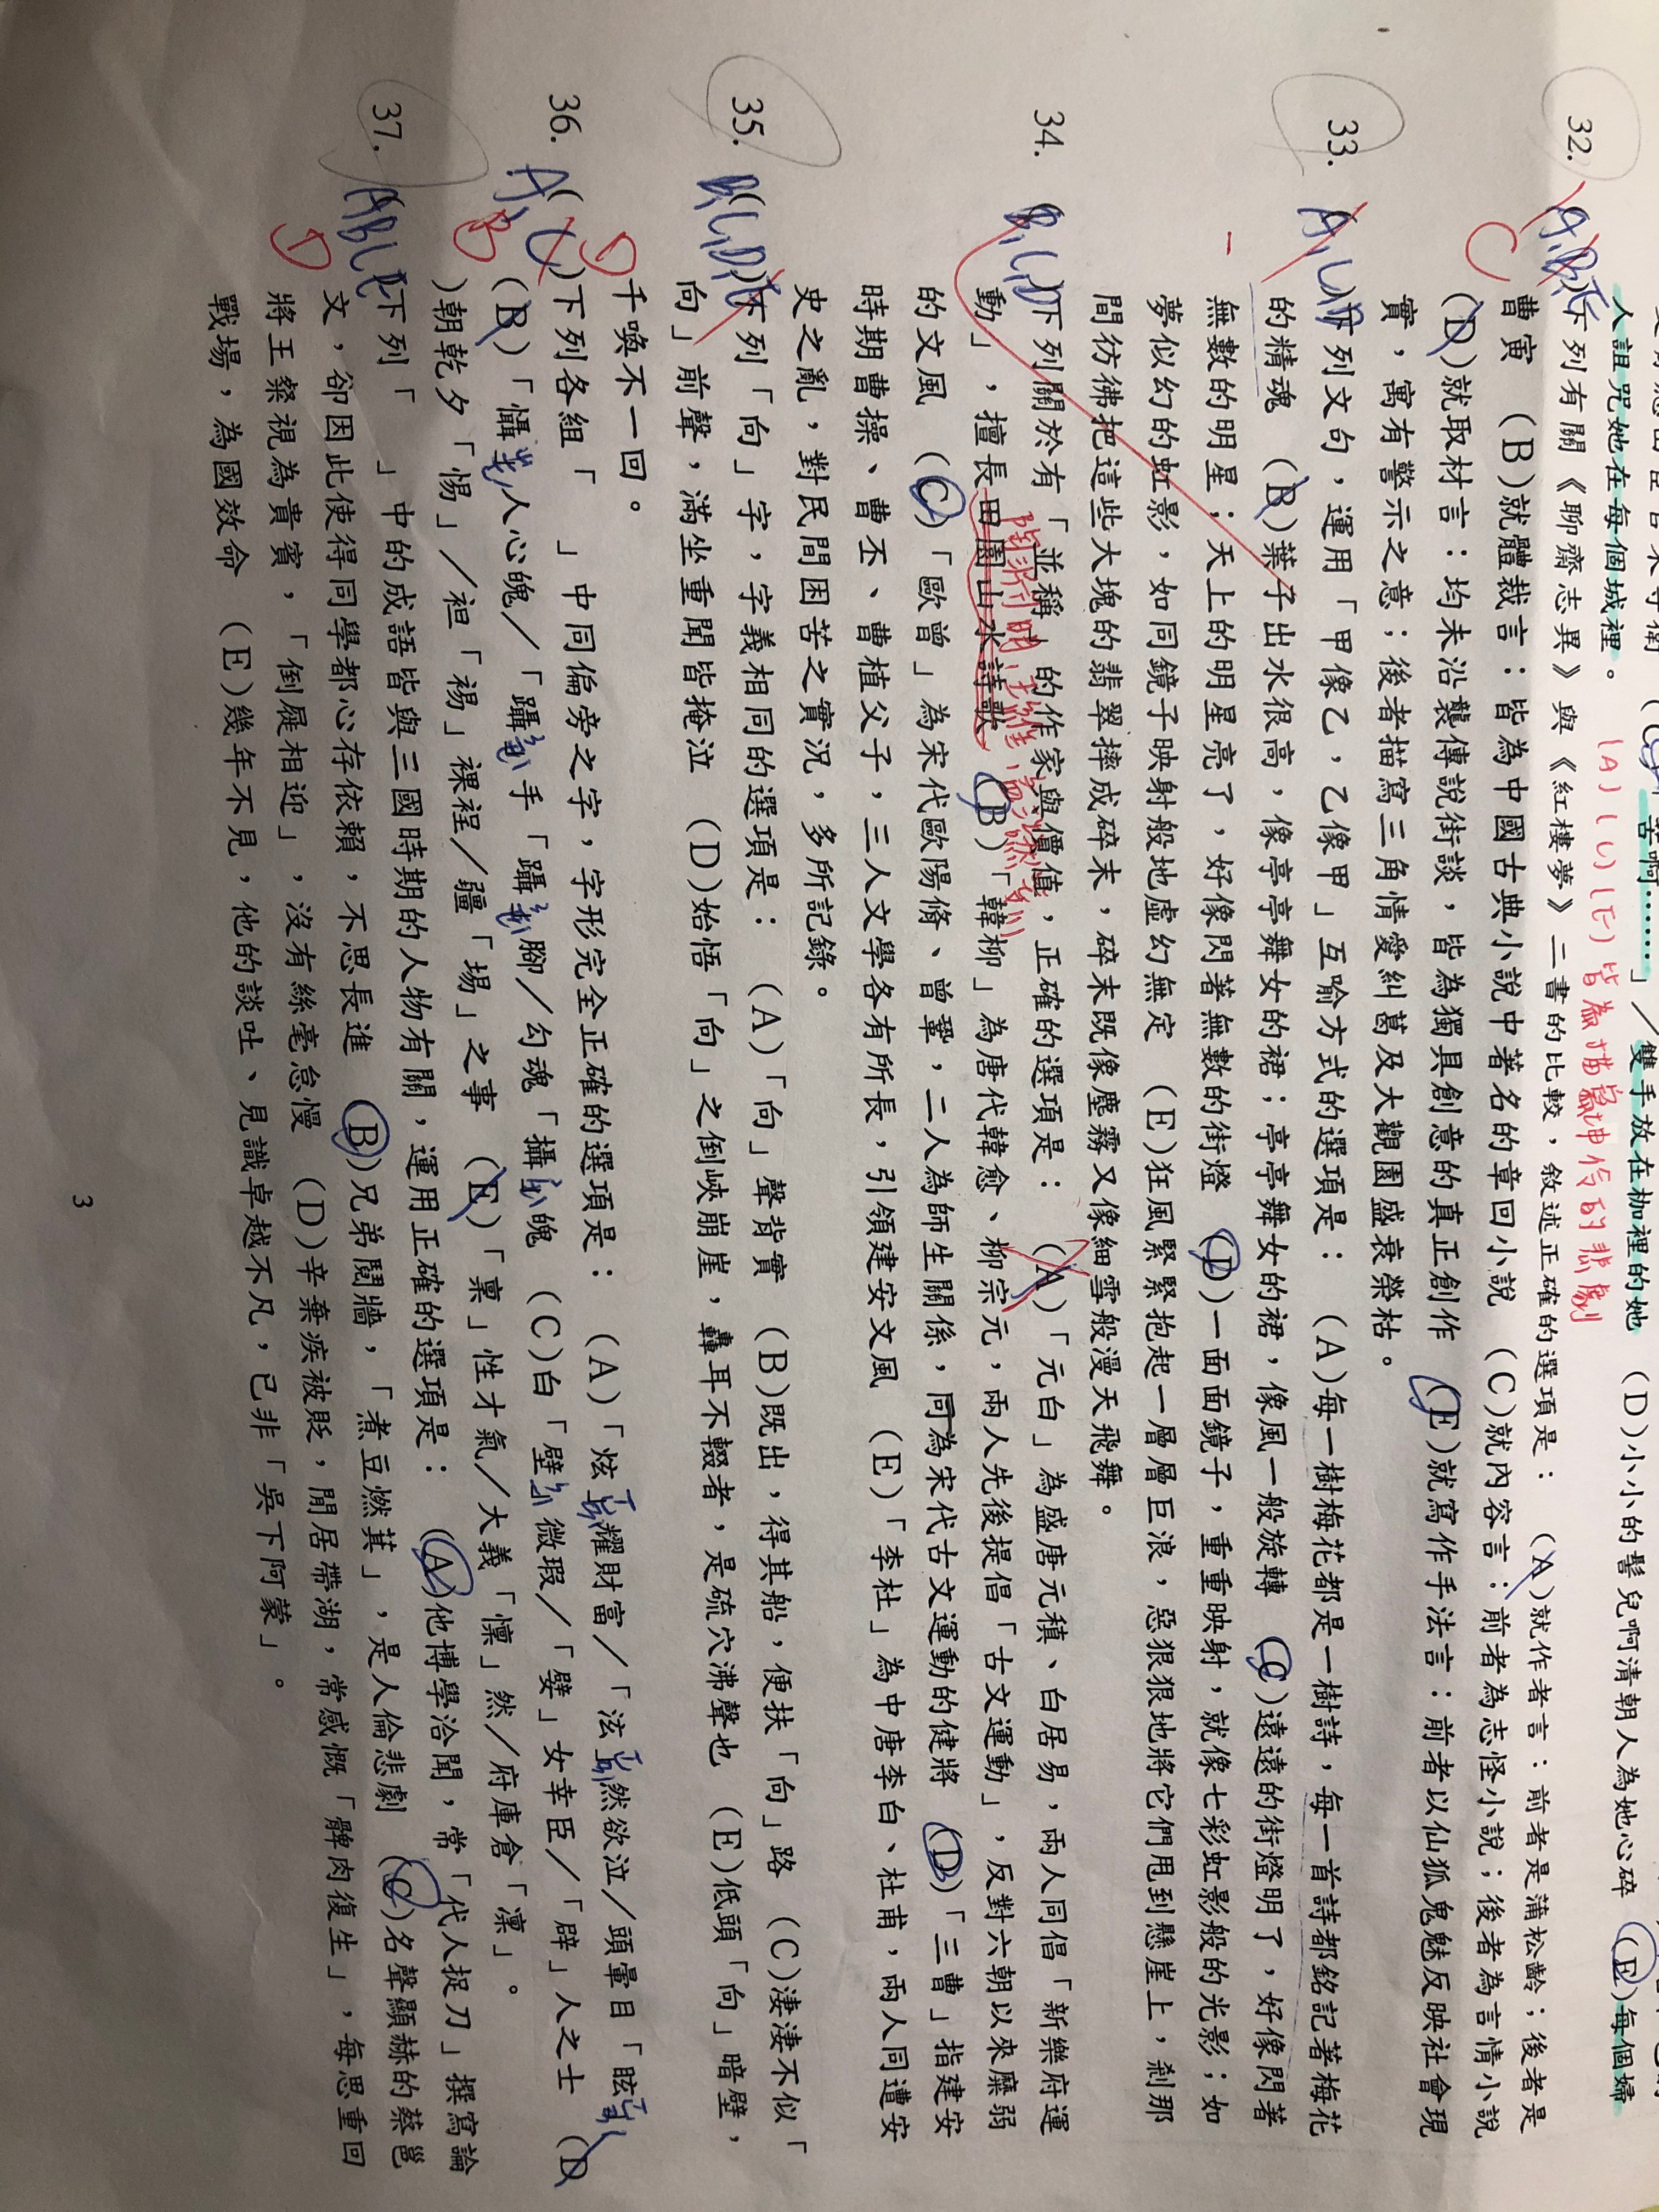 人詛咒她在每個城裡。
苦啊……」／雙手放在枷裡的她 (D)小小的髻兒啊清朝人為她心碎 (E)每個婦
(A)(C)(E)皆為描寫
的悲劇
32. 下列有關《聊齋志異》與《紅樓夢》二書的比較，敘述正確的選項是： (A)就作者言：前者是蒲松齡；後者是
C
曹寅 (B)就體裁言：皆為中國古典小說中著名的章回小說 (C)就內容言：前者為志怪小說；後者為言情小說
(D)就取材言：均未沿襲傳說街談，皆為獨具創意的真正創作 (E)就寫作手法言：前者以仙狐鬼魅反映社會現
實，寓有警示之意；後者描寫三角情愛糾葛及大觀園盛衰榮枯。
33. A,C,D 下列文句，運用「甲像乙，乙像甲」互喻方式的選項是： (A)每一樹梅花都是一樹詩，每一首詩都銘記著梅花
的精魂 (B)葉子出水很高，像亭亭舞女的裙；亭亭舞女的裙，像風一般旋轉 (C)遠遠的街燈明了，好像閃著
無數的明星；天上的明星亮了，好像閃著無數的街燈 (D)一面面鏡子，重重映射，就像七彩虹影般的光影；如
夢似幻的虹影，如同鏡子映射般地虛幻無定 (E)狂風緊緊抱起一層層巨浪，惡狠狠地將它們甩到懸崖上，剎那
間彷彿把這些大塊的翡翠摔成碎末，碎末既像塵霧又像細雪般漫天飛舞。
34. B,C,D 下列關於有「並稱」的作家與價值，正確的選項是： (A)「元白」為盛唐元稹、白居易，兩人同倡「新樂府運
陶淵明、王維、孟浩然
動」，擅長田園山水詩歌 (B)「韓柳」為唐代韓愈、柳宗元，兩人先後提倡「古文運動」，反對六朝以來靡弱
的文風 (C)「歐曾」為宋代歐陽脩、曾鞏，二人為師生關係，同為宋代古文運動的健將 (D)「三曹」指建安
時期曹操、曹丕、曹植父子，三人文學各有所長，引領建安文風 (E)「李杜」為中唐李白、杜甫，兩人同遭安
史之亂，對民間困苦之實況，多所記錄。
35. B,C,D,E 下列「向」字，字義相同的選項是： (A)「向」聲背實 (B)既出，得其船，便扶「向」路 (C)淒淒不似「
向」前聲，滿坐重聞皆掩泣 (D)始悟「向」之倒峽崩崖，轟耳不輟者，是硫穴沸聲也 (E)低頭「向」暗壁，
千喚不一回。
D
36. ( A, C )下列各組「 」中同偏旁之字，字形完全正確的選項是： (A)「炫耀財富／「泫然欲泣／頭暈目「眩
B
(B)「懾人心魄／「躡手「躡腳／勾魂「攝魄 (C)白「壁微瑕／「嬖」女幸臣／「辟」人之士 (D
)朝乾夕「惕」／袒「裼」裸裎／疆「場」之事 (E)「稟」性才氣／大義「懍」然／府庫倉「凜」。
37. ABCD 下列「 」中的成語皆與三國時期的人物有關，運用正確的選項是： (A)他博學洽聞，常「代人捉刀」撰寫論
D
文，卻因此使得同學都心存依賴，不思長進 (B)兄弟鬩牆，「煮豆燃萁」，是人倫悲劇 (C)名聲顯赫的蔡邕
將王粲視為貴賓，「倒屣相迎」，沒有絲毫怠慢 (D)辛棄疾被貶，閒居帶湖，常感慨「髀肉復生」，每思重回
戰場，為國效命 (E)幾年不見，他的談吐、見識卓越不凡，已非「吳下阿蒙」。
3